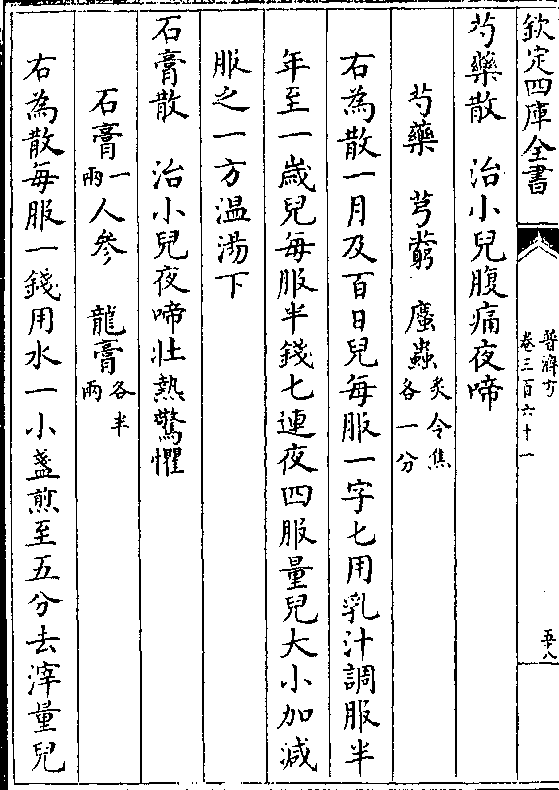 欽定四庫全書
普濟方
卷三百六十一
五十八
芍藥散　治小兒腹痛夜啼
芍藥　芎藭　䗪蟲炙令焦各一分
右為散一月及百日兒每服一字七用乳汁調服半
年至一歲兒每服半錢七連夜四服量兒大小加減
服之一方温湯下
石膏散　治小兒夜啼壯熱驚懼
石膏一兩人參　龍膏各半兩
右為散每服一錢用水一小盞煎至五分去滓量兒